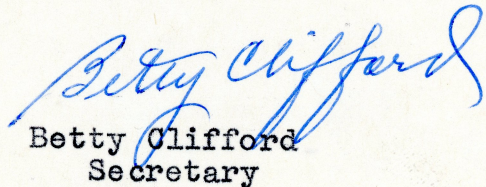 Betty Clifford
Betty Clifford
Secretary